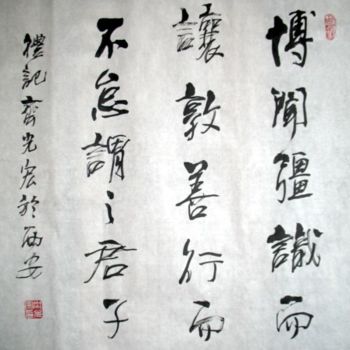 博聞彊識而
讓敦善行而
不怠謂之君子
禮記齊光宏於西安